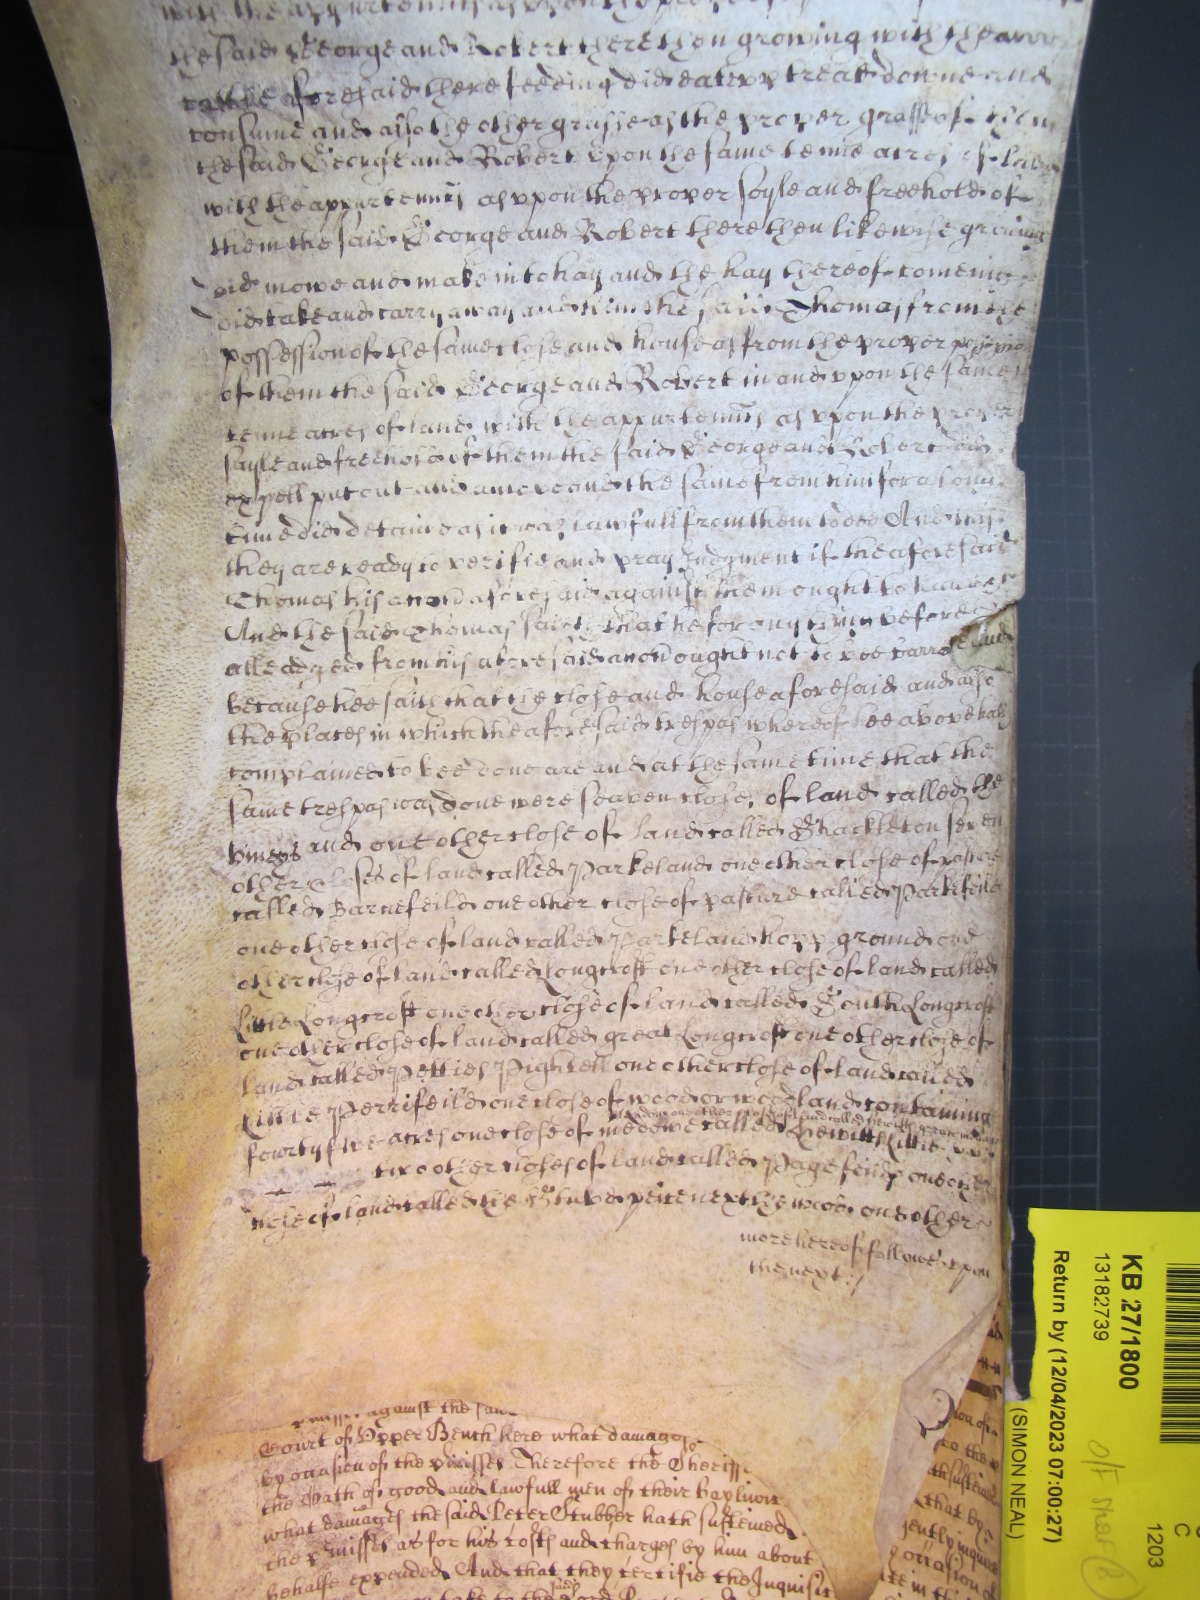 with the appurtennts as upon the proper
the said George and Robert there then growing with the
cattle aforesaid there feeding did eate upp treat downe and
consume and also the other grasse as the proper grasse of them
the said George and Robert upon the same tenne acres of land
with the appurtennts as upon the proper soyle and freehold of
them the said George and Robert there then likewise growing
did mowe and make into hay and the hay thereof comeing
did take and carry away and him the said Thomas from the
possession of the same close and house as from the proper possession
of them the said George and Robert in and upon the same
tenne acres of land with the appurtennts as upon the proper
soyle and freehold of them the said George and Robert did
expell put out and amove and the same from him for a long
time did detaine as it was lawfull from them to doe And this
they are ready to verifie and pray Judgment if the aforesaid
Thomas his accon aforesaid against them ought to have &c
And the said Thomas saith that he for any thing before
alleadged from his aforesaid accon ought not to bee barred
because hee saith that the close and house aforesaid and also
the places in which the aforesaid trespas whereof hee above hath
complained to bee done are and at the same time that the
same trespas was done were seaven closes of land called the
and one other close of land called Shackleton seven
other closes of land called Parkeland one other close of pasture
called Barnefeild one other close of pasture called Parkefeild
one other close of land called Parkeland hopp ground one
other close of land called Longcroft one other close of land called
Little Longcroft one other close of land called South Longcroft
one other close of land called great Longcroft one other close of
land called Petties Pightell one other close of land called
Little Perrifeild one close of wood or woodland containing
one other close of land called Hewitts great
fourty five acres one close of medowe called Hewitts Little
two other closes of land called Pagefeilds one other
close of land called the peice next the wood one other
more hereof followes upon
the next
against the
Court of Upper Bench here what damages
by occasion of the premisses Therefore the Sheriff
the Oath of good and lawfull men of their Bayliwic
what damages the said Peter Stubber hath susteined
the premisses as for his costs and charges by him about
behalfe expended And that they certifie the Inquisic
take to the Lord
to the
that by
gently inquire
occasion of
in th
KB 27/1800
13182739
Return by (12/04/2023 07:00:27)
(SIMON NEAL)
C
1203